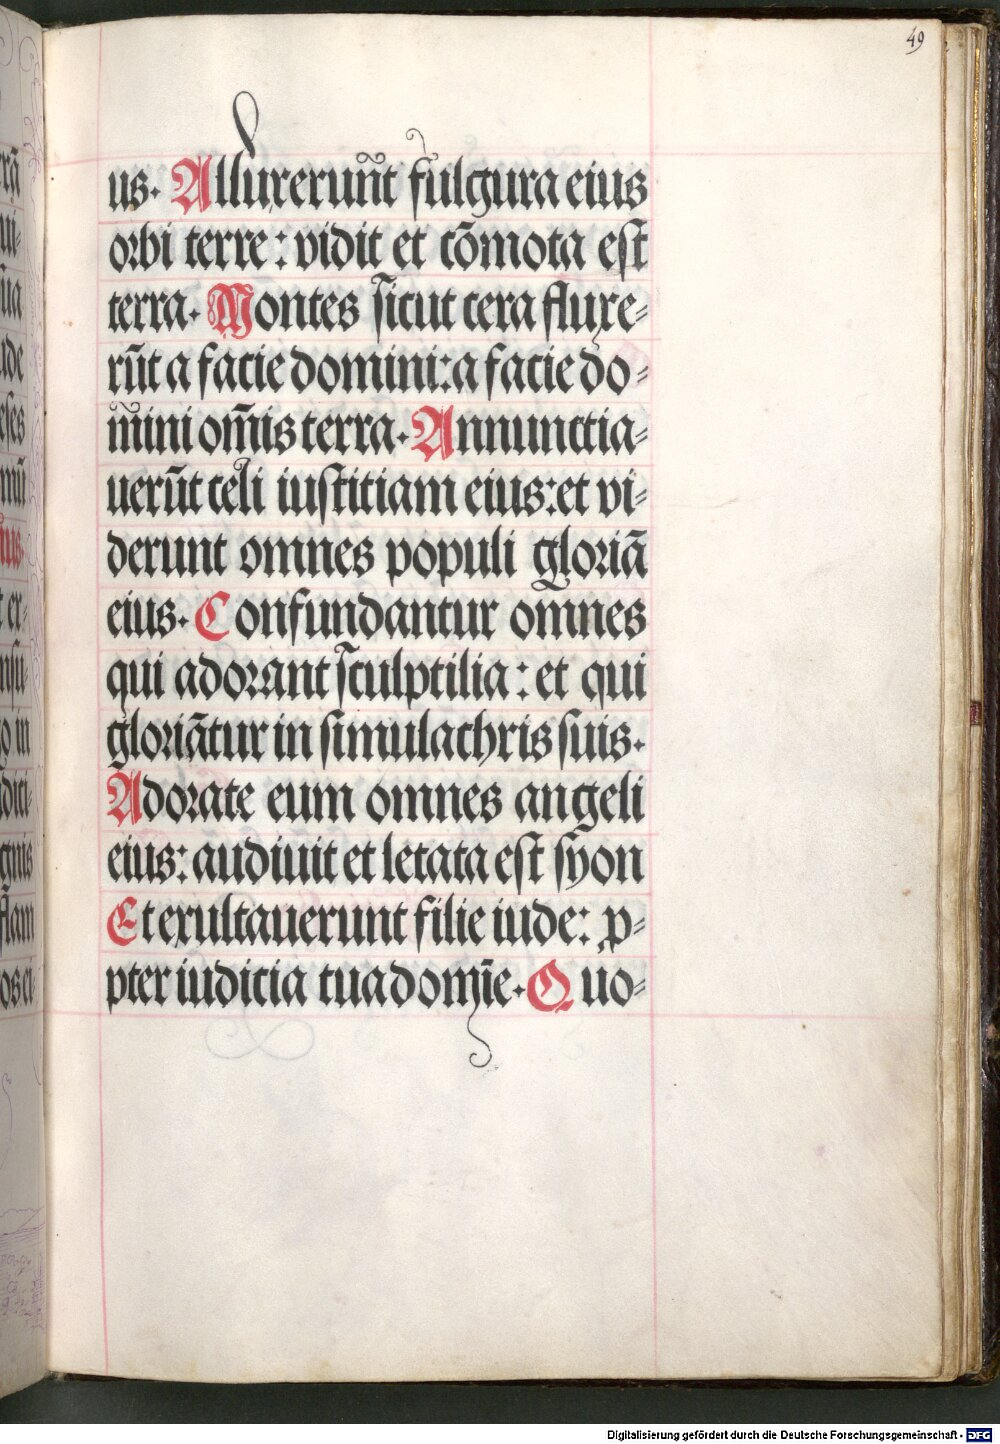 49
us. Alluxerunt̃ fulgura eius
orbi terre: vidit et cõmota est
terra. Montes sicut cera fluxe=
rũt a facie domini: a facie do=
mini om̃is terra. Annunctia=
uerũt celi iustitiam eius: et vi=
derunt omnes populi gloriã
eius. Confundantur omnes
qui adorant sculptilia: et qui
gloriãtur in simulachris suis.
Adorate eum omnes angeli
eius: audiuit et letata est syon
Et exultauerunt filie iude: ꝓ=
pter iudicia tua domĩe. Quo=
Digitalisierung gefördert durch die Deutsche Forschungsgemeinschaft - DFG